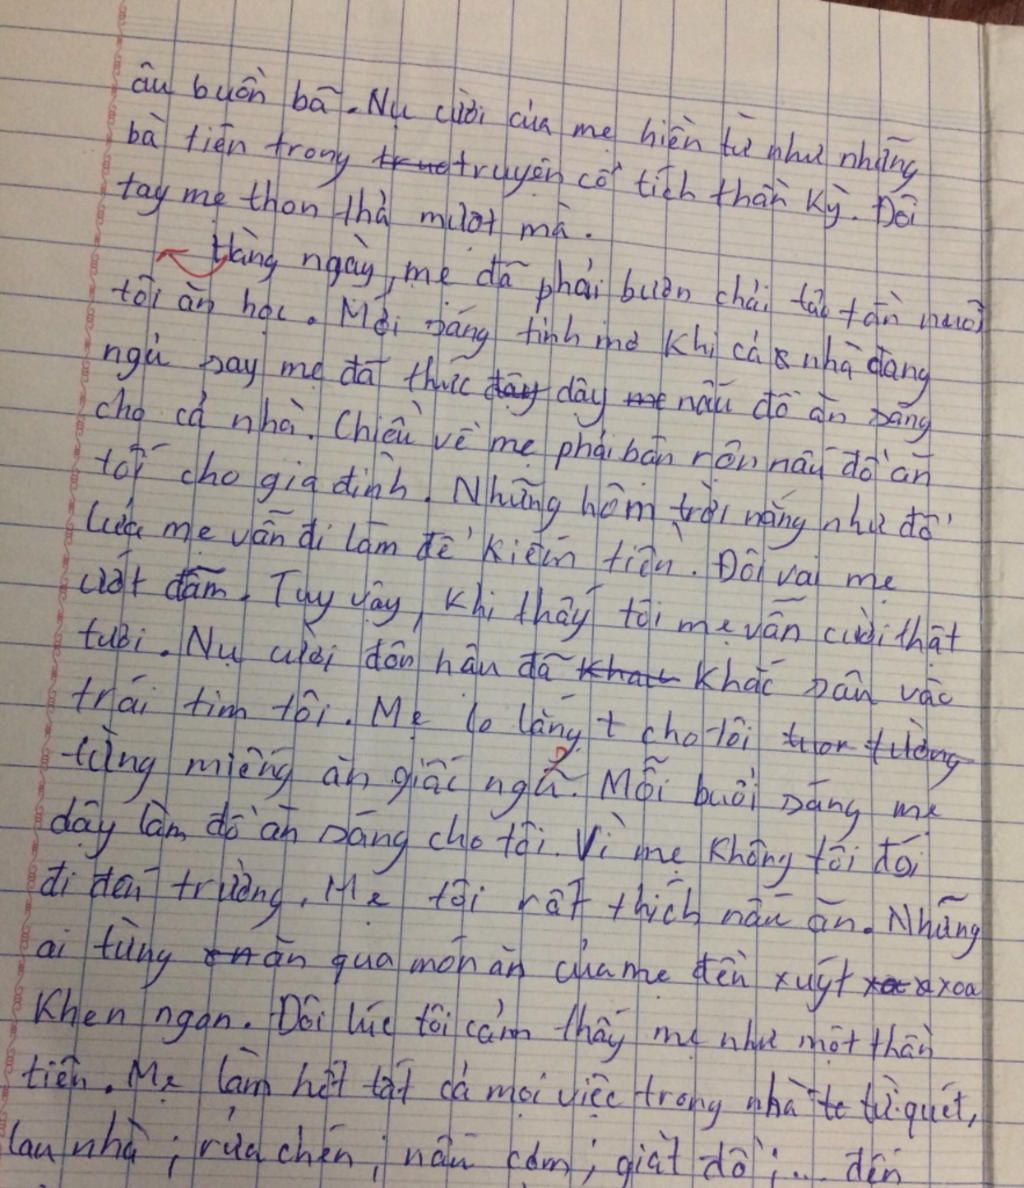 âu buồn bã. Nụ cười của mẹ hiền từ như những
bà tiên trong truyện cổ tích thần kỳ. Đôi
tay mẹ thon thả mượt mà.
Hàng ngày, mẹ đã phải buôn chải tảo tần nuôi
tôi ăn học. Mỗi sáng tinh mơ khi cả nhà đang
ngủ say mẹ đã thức dây nấu đồ ăn sáng
cho cả nhà. Chiều về mẹ phải bận rộn nấu đồ ăn
tối cho gia đình. Những hôm trời nắng như đổ
lửa mẹ vẫn đi làm để kiếm tiền. Đôi vai mẹ
ướt đẫm. Tuy vậy, khi thấy tôi mẹ vẫn cười thật
tươi. Nụ cười đôn hậu đã khắc sâu vác
trái tim tôi. Mẹ lo lắng cho tôi
từng miếng ăn giấc ngủ. Mỗi buổi sáng mẹ
dậy làm đồ ăn sáng cho tôi. Vì mẹ không tôi đói
đi đến trường. Mẹ tôi rất thích nấu ăn. Những
ai từng ăn qua món ăn của mẹ đền xuýt xoa
khen ngon. Đôi lúc tôi cảm thấy mẹ như một thần
tiên. Mẹ làm hết tất cả mọi việc trong nhà từ quét,
lau nhà ; rửa chén ; nấu cơm ; giặt đồ ;... đến